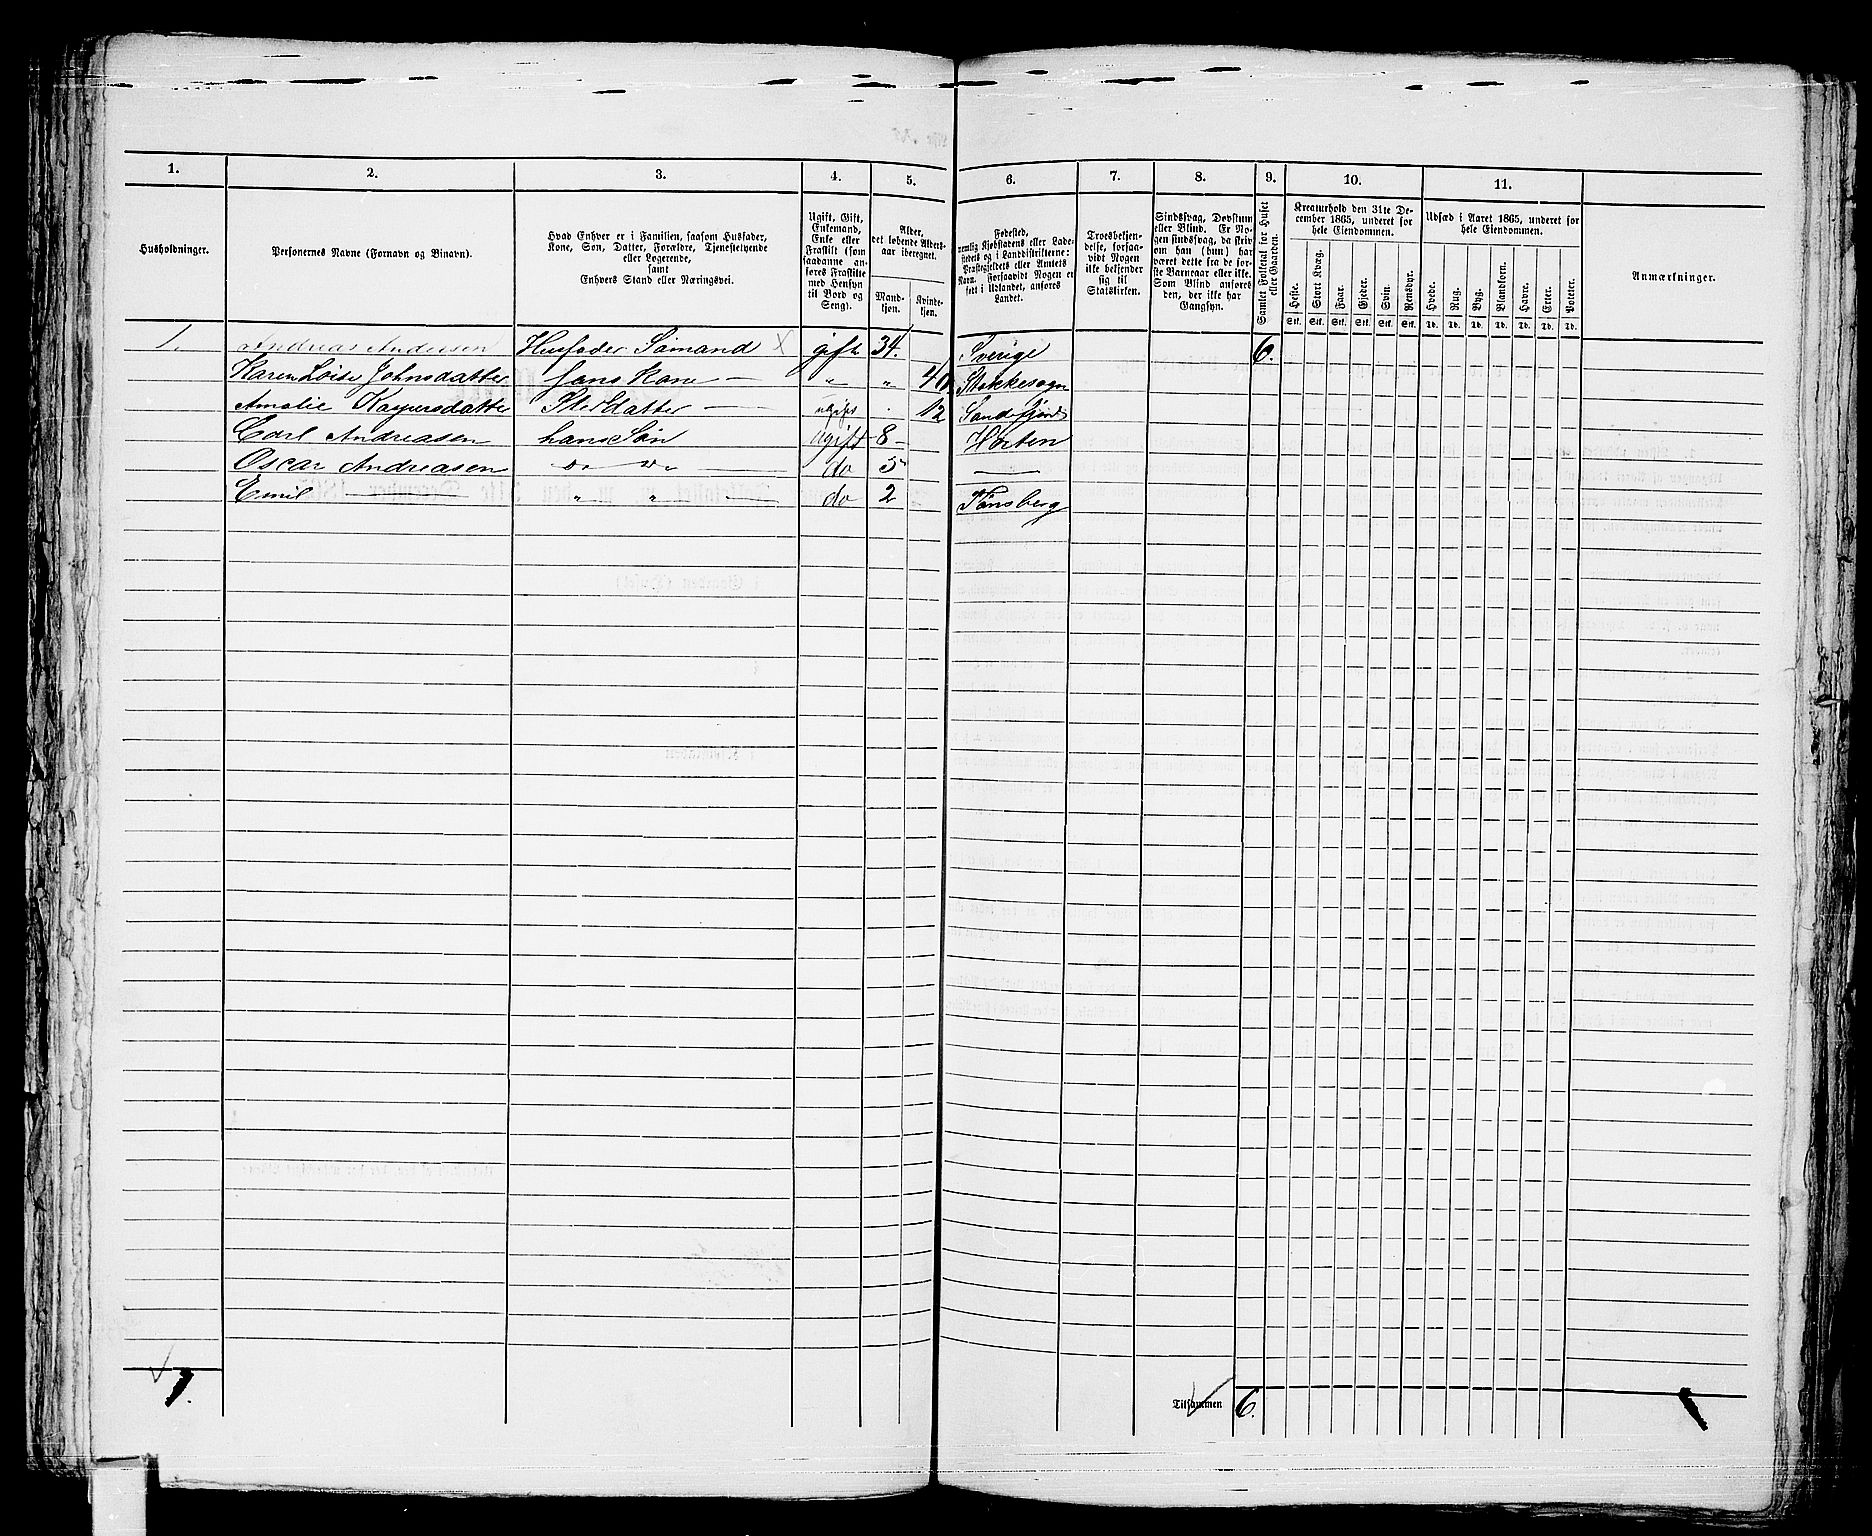 1. 2. 3. 4. 5. 6. 7. 8. 9. 10. 11.
Husholdninger.
Personernes Navne (Fornavn og Binavn).
Hvad Enhver er i Familien, saasom Husfader,
Kone, Søn, Datter, Forældre, Tjenestetyende
eller Logerende,
samt
Enhvers Stand eller Næringsvei.
Ugift, Gift,
Enkemand,
Enke eller
Fraskilt (som
saadanne an-
føres Fraskilte
med Hensyn
til Bord og
Seng).
Alder,
det løbende Alders-
aar iberegnet.
Mand-
kjøn.
Kvinde-
kjøn.
Fødested,
nemlig Kjøbstadens eller Lade-
stedets og i Landdistrikterne:
Præstegjeldets eller Amtets
Navn. Forsaavidt Nogen er
født i Udlandet, anføres
Landet.
Troesbekjen-
delse, forsaa-
vidt Nogen
ikke bekjender
sig til
Statskirken.
Sindssvag, Døvstum
eller Blind. Er No-
gen sindssvag, da skriv
om han (hun) har
været dette fra de før-
ste Barneaar eller ikke.
Som Blind ansøres
den, der ikke har
Gangsyn.
Samlet Folketal for Huset
eller Gaarden.
Kreaturhold den 31te De-
cember 1865, underet for
hele Eiendommen.
Heste. Stort Kvæg. Faar. Gjeder. Svin. Rensdyr.
Stk. Stk. Stk. Stk. Stk. Stk.
Udsæd i Aaret 1865, underet for
hele Eiendommen.
Hvede. Rug. Byg. Blandkorn. Havre. Erter. Poteter.
Td. Td. Td. Td. Td. Td. Td.
Anmærkninger.
1. Andreas Andersen Husfader Sømand X gift 34. Sverige 6.
Karen Loise Johnsdatter hans Kone — " " 40 Stokkesogn
Amalie Kaspersdatter Steddatter — ugift 12 Sandefjord
Carl Andreasen hans Søn ugift 8 — Horten
Oscar Andreasen do do — do 5 —
Emil — " " do 2 Tønsberg
1.
Tilsammen 6.